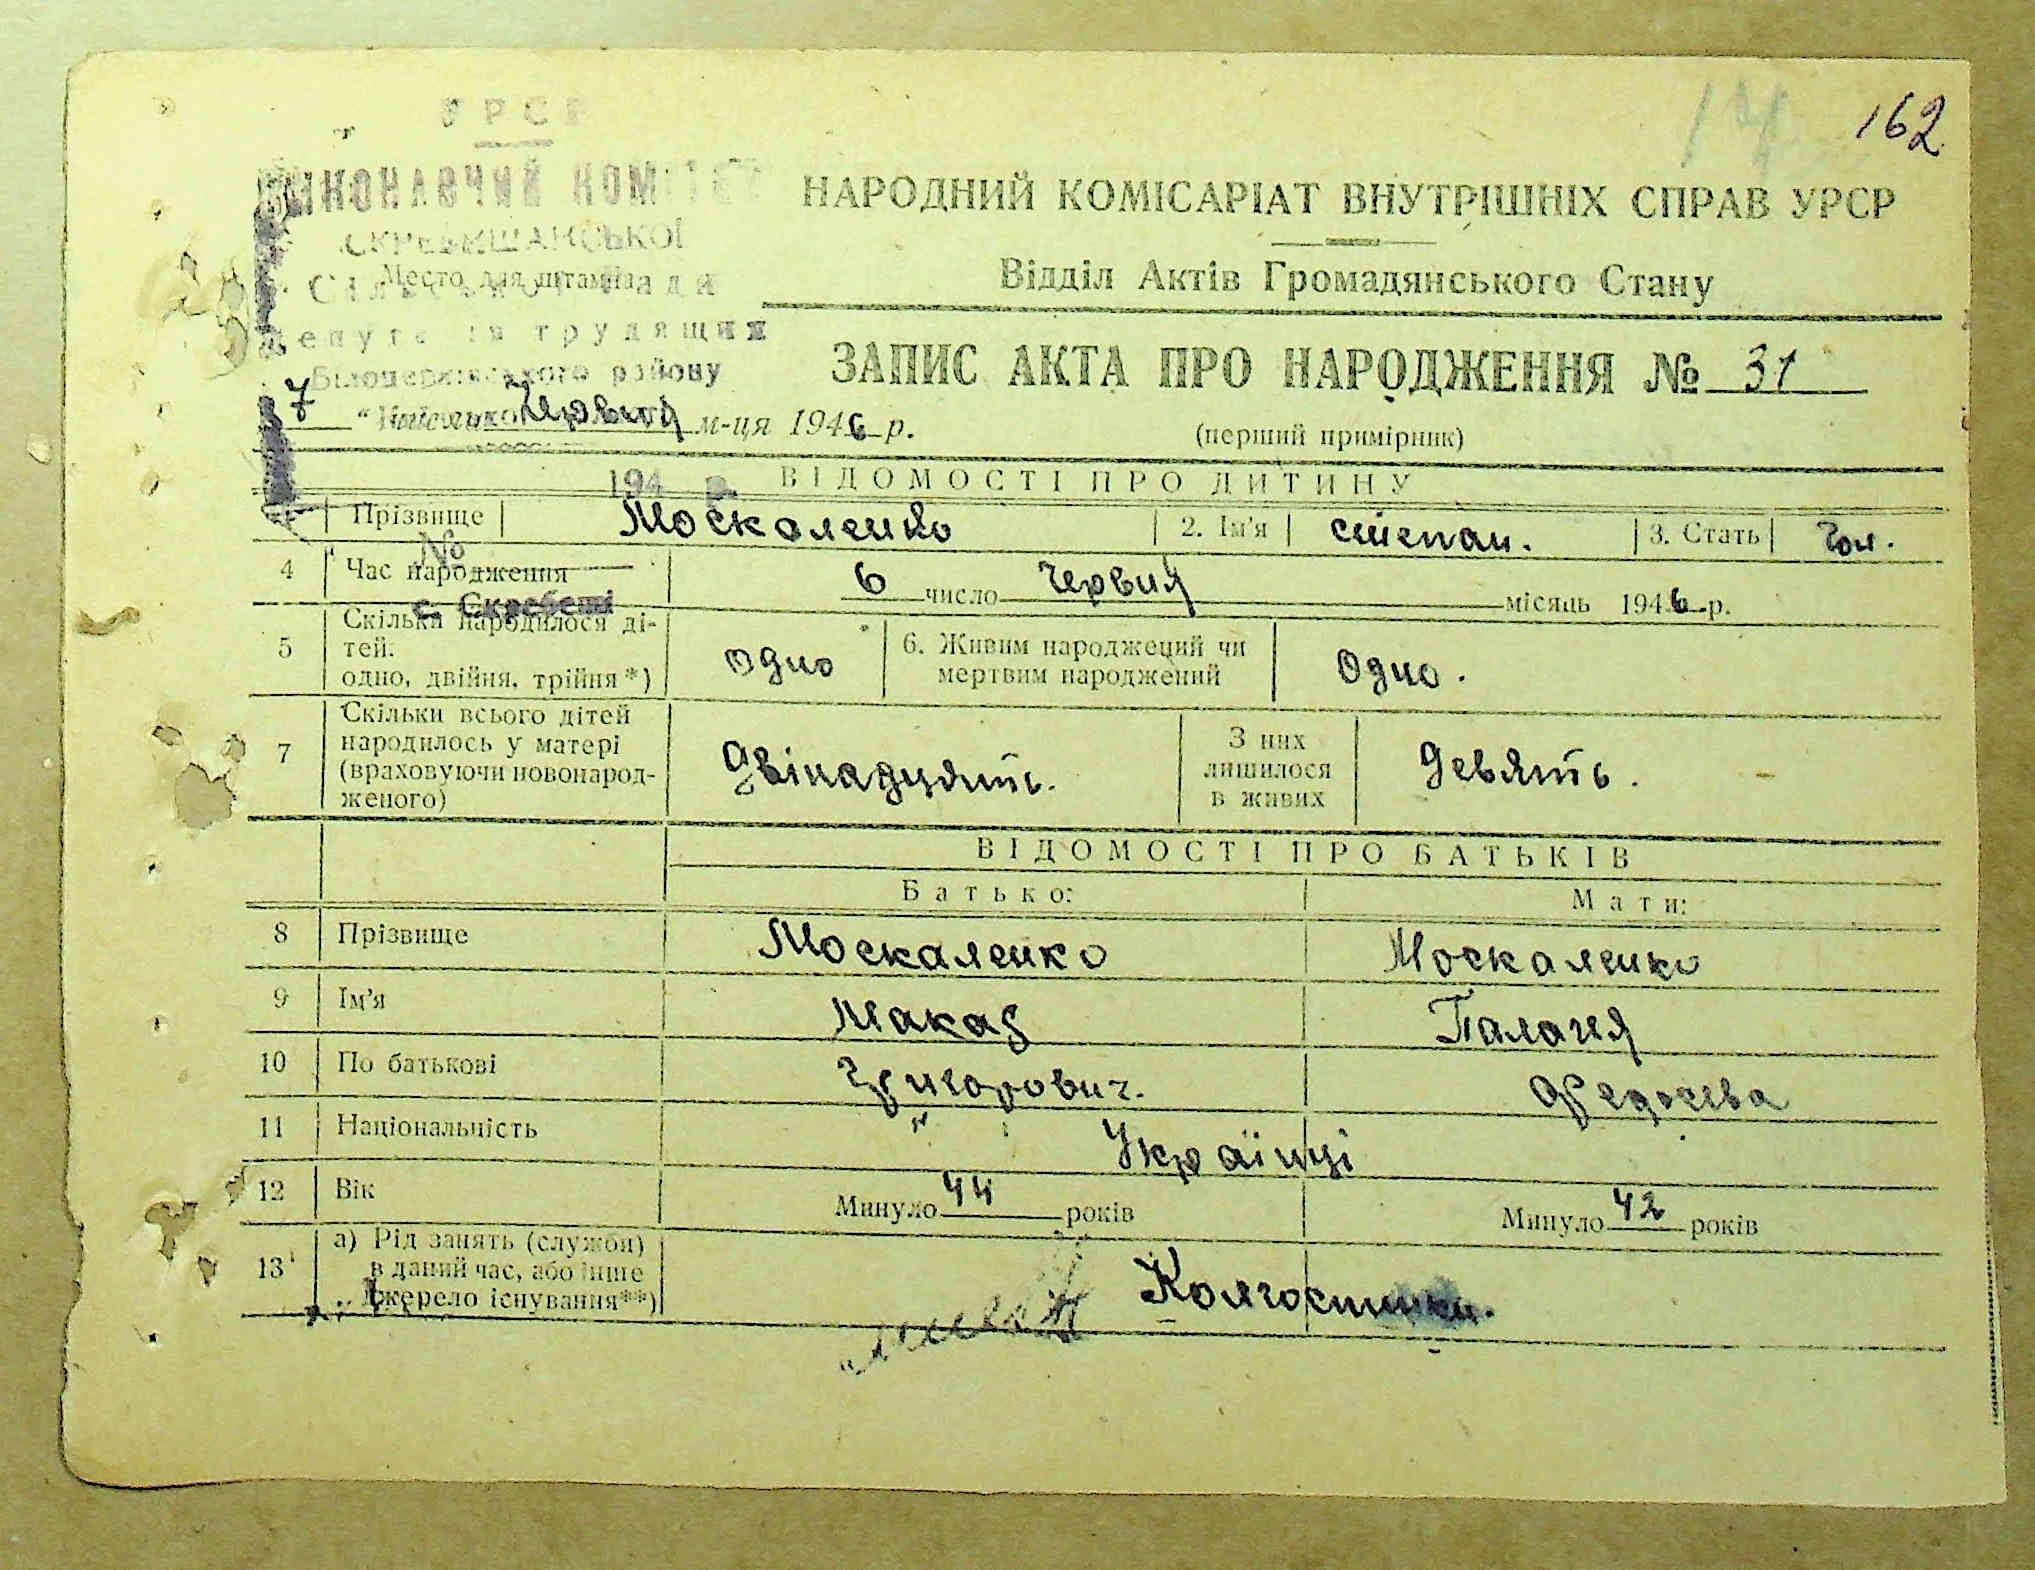 162
УРСР
ВИКОНАВЧИЙ КОМІТЕТ
НАРОДНИЙ КОМІСАРІАТ ВНУТРІШНІХ СПРАВ УРСР
СКРЕБИШАНСЬКОЇ
Відділ Актів Громадянського Стану
Место для штампа
депутатів трудящих
ЗАПИС АКТА ПРО НАРОДЖЕННЯ № 31
Білоцерківського району
7 " Червня м-ця 1946 р.
(перший примірник)
194 р.
ВІДОМОСТІ ПРО ДИТИНУ
Прізвище Москаленко 2. Ім'я степан. 3. Стать Чол.
№
4 Час народження 6 число Червня місяць 1946 р.
с. Скребеші
5 Скільки народилося ді-
тей.
одно, двійня, трійня*) Одно 6. Живим народжений чи
мертвим народжений Одно.
7 Скільки всього дітей
народилось у матері
(враховуючи новонарод-
женого) Двінадцять. З них
лишилося
в живих Девять.
ВІДОМОСТІ ПРО БАТЬКІВ
Батько: Мати:
8 Прізвище Москаленко Москаленко
9 Ім'я Макар Палагия
10 По батькові Григорович. Федосева
11 Національність Українці
12 Вік Минуло 44 років Минуло 42 років
13 а) Рід занять (служби)
в даний час, або інше
джерело існування**) Колгоспники.